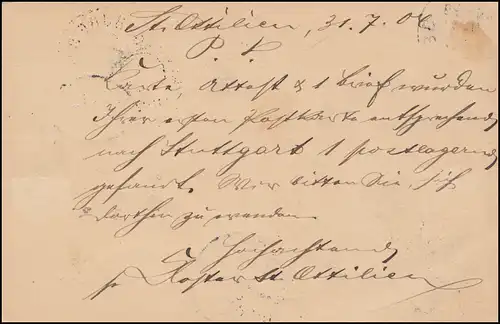 St. Ottilien, 31.7.04
P. P.
Karte, Attest & 1 Brief wurden
Ihrer ersten Postkarte entsprechend
nach Stuttgart 1 postlagernd
gesandt. Wir bitten Sie, sich
dorthin zu wenden.
Hochachtend
Kloster St. Ottilien